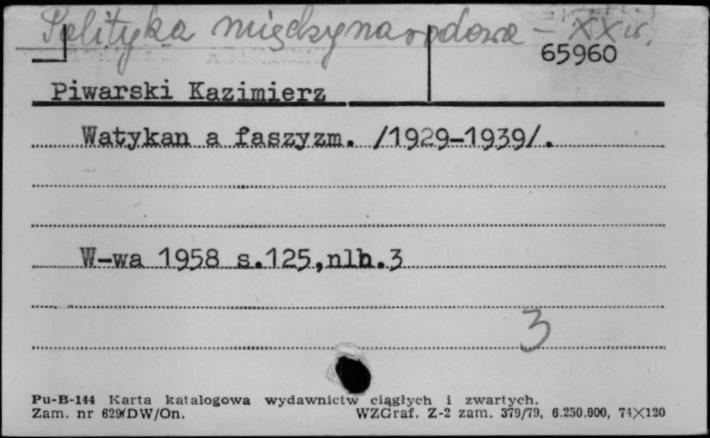 Polityka międzynarodowa - XX w.
65960
Piwarski Kazimierz
Watykan a faszyzm. /1929-1939/.
W-wa 1958 s.125,nlb.3
3
Pu-B-144 Karta katalogowa wydawnictw ciągłych i zwartych.
Zam. nr 629/DW/On. WZGraf. Z-2 zam. 379/79, 6.250.000, 74×120